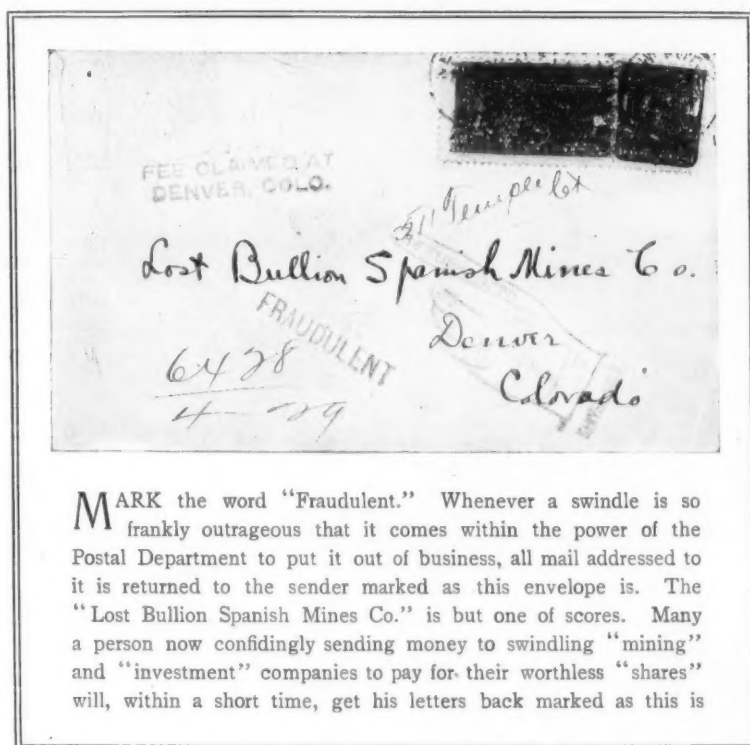 FEE CLAIMED AT
DENVER, COLO.
511 Temple Ct
Lost Bullion Spanish Mines Co.
FRAUDULENT
Denver
Colorado
6428
4-29
MARK the word “Fraudulent.” Whenever a swindle is so
frankly outrageous that it comes within the power of the
Postal Department to put it out of business, all mail addressed to
it is returned to the sender marked as this envelope is. The
“Lost Bullion Spanish Mines Co.” is but one of scores. Many
a person now confidingly sending money to swindling “mining”
and “investment” companies to pay for their worthless “shares”
will, within a short time, get his letters back marked as this is